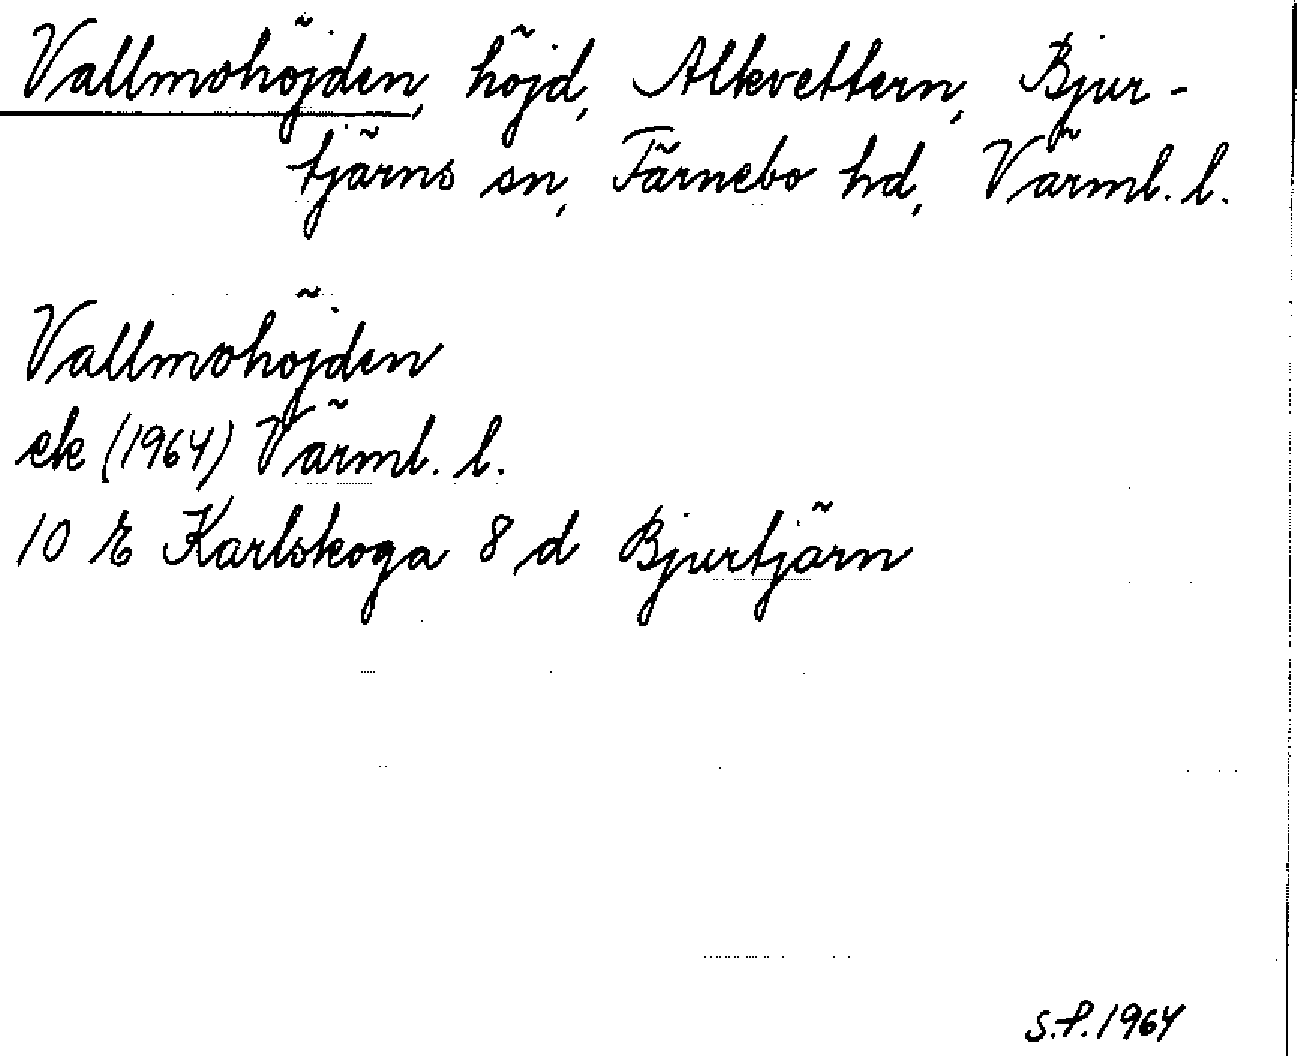 Vallmohöjden, höjd, Alkvettern, Bjur-
tjärns sn, Färnebo hd, Värml. l.
Vallmohöjden
ek (1964) Värml. l.
10 E Karlskoga 8 d Bjurtjärn
S.P. 1964